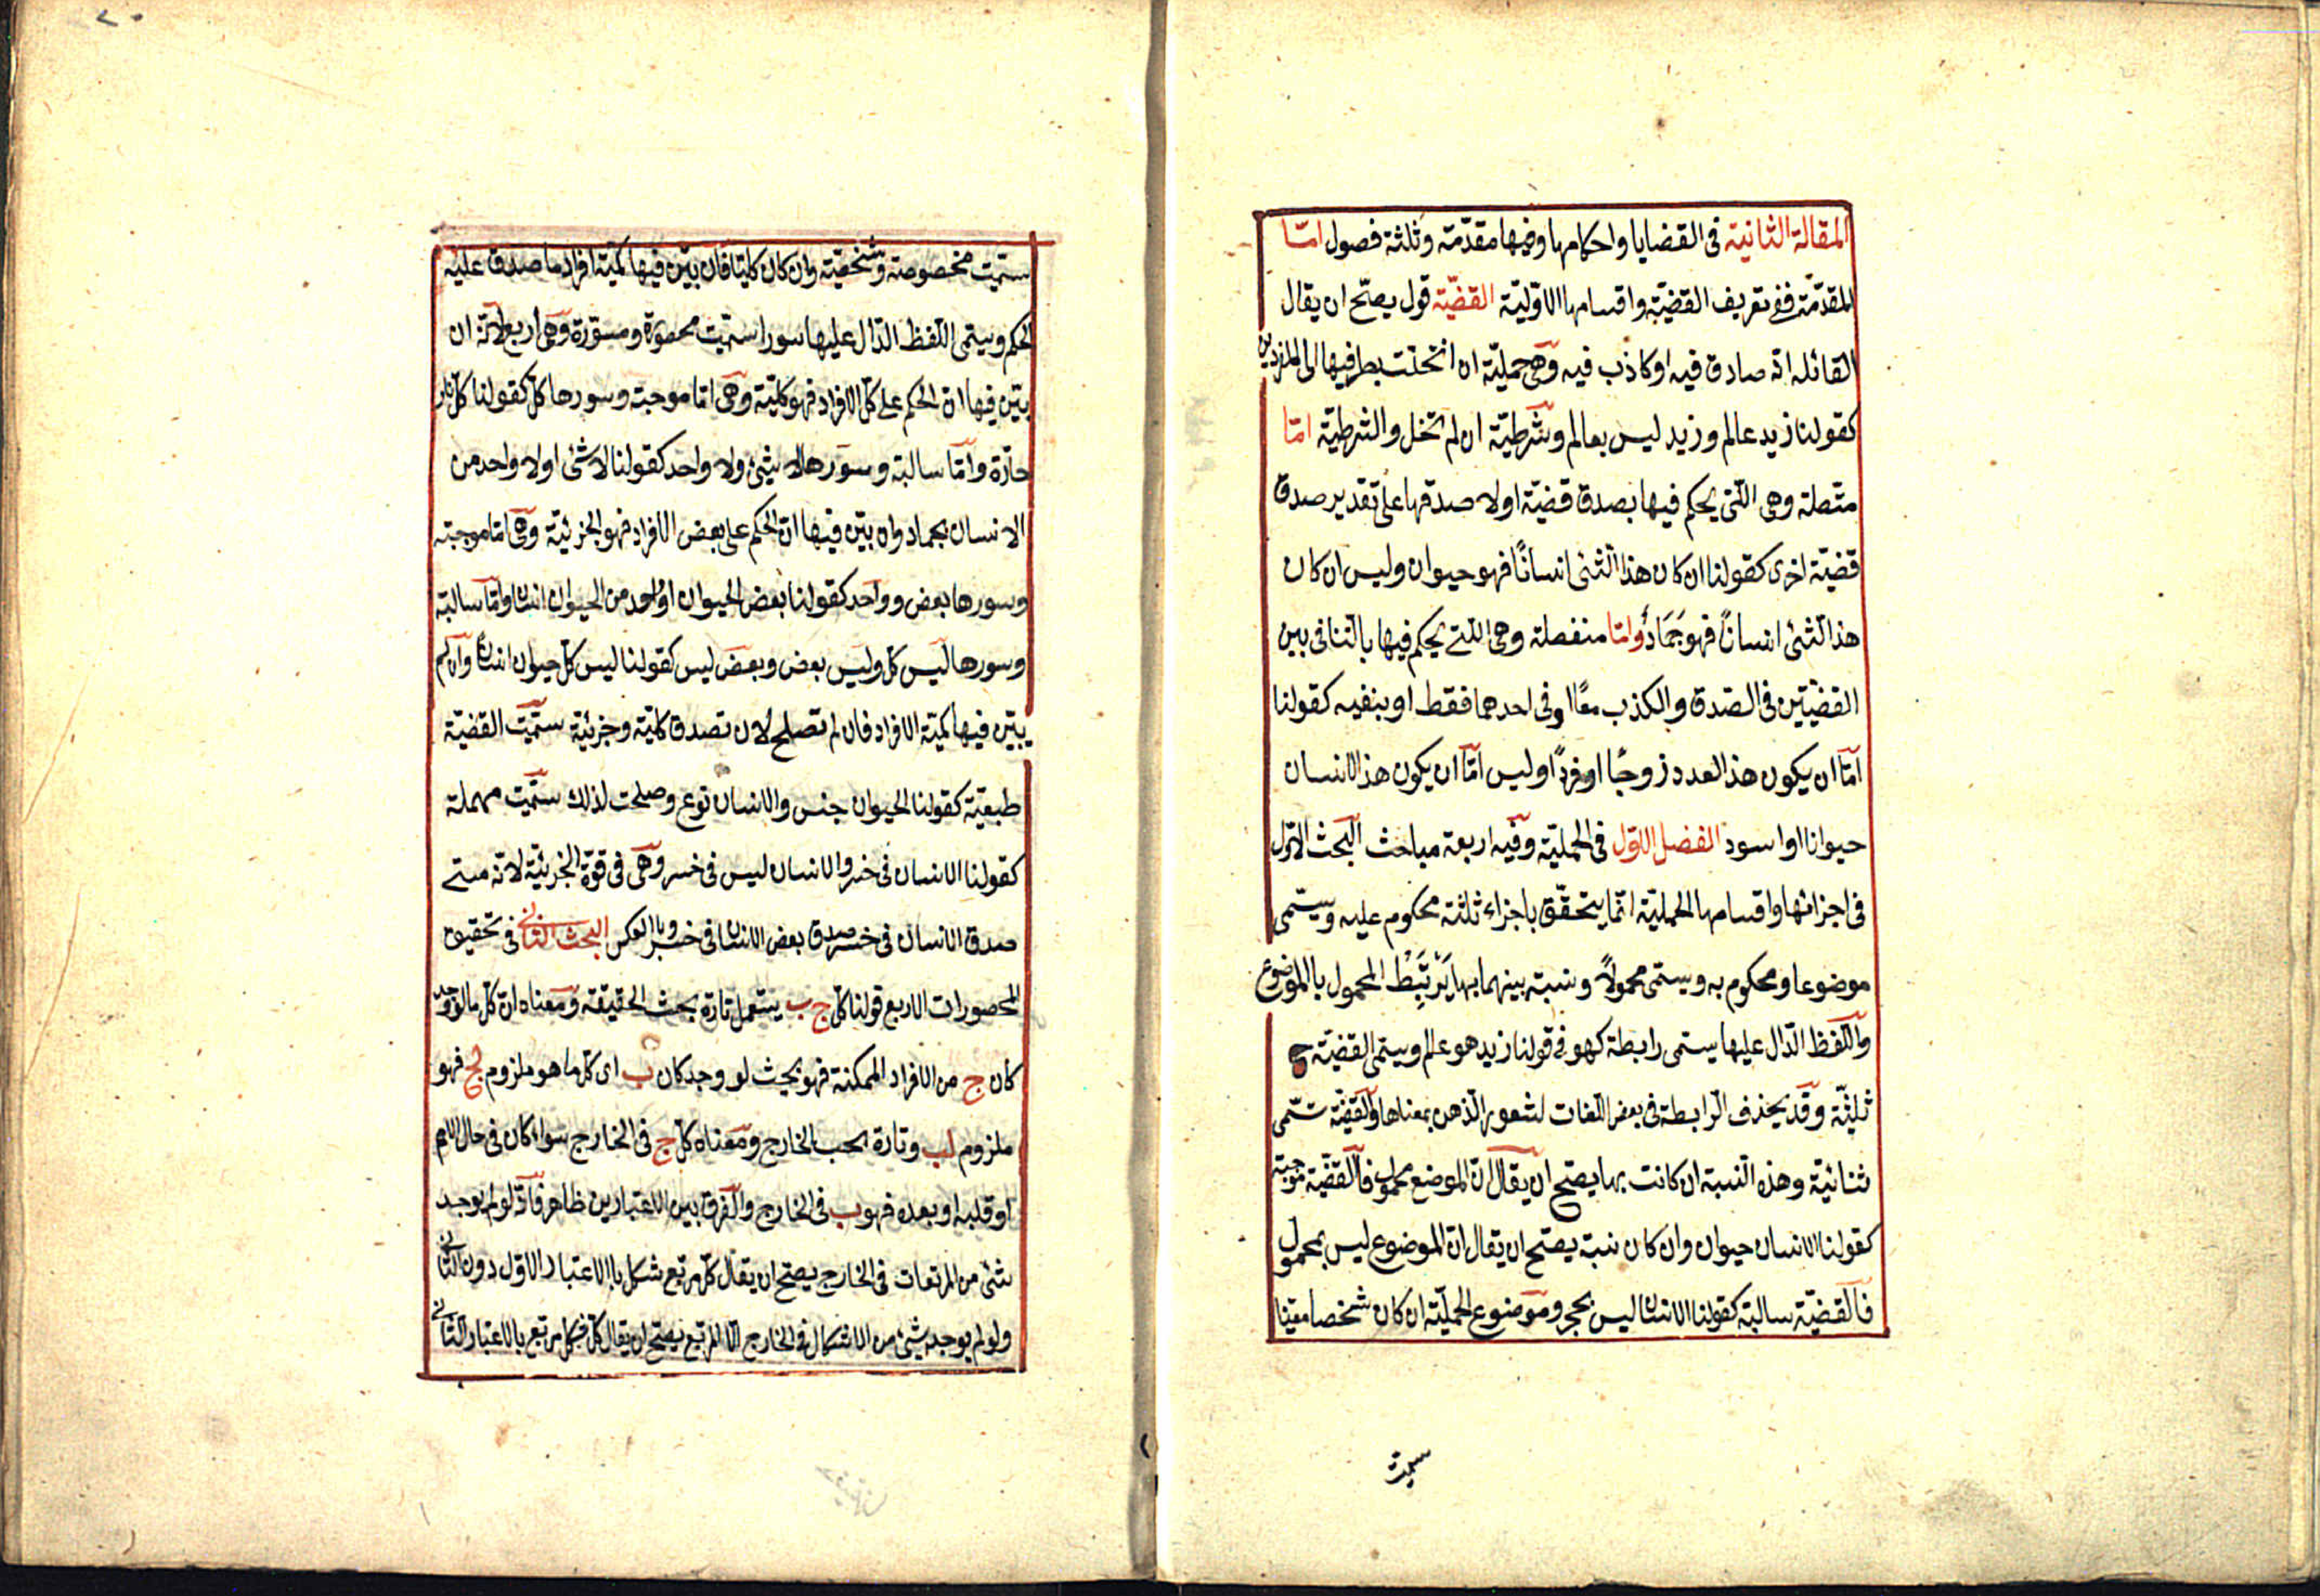 المقالة الثانية فى القضايا واحكامها وفيها مقدّمة وثلثة فصول امّا
المقدّمة ففى تعريف القضيّة واقسامها الاوّليّة القضيّة قول يصحّ ان يقال
لقائله انه صادق فيه او كاذب فيه وهى حمليّة ان انحلّت بطرفيها الى المفردين
كقولنا زيد عالم وزيد ليس بعالم وشرطيّة ان لم تنحل والشرطيّة امّا
متّصلة وهى الّتى يحكم فيها بصدق قضيّة اولا صدقها على تقدير صدق
قضيّة اخرى كقولنا ان كان هذا الشئ انسانًا فهو حيوان وليس ان كان
هذا الشئ انسانًا فهو جَمَادٌ وامّا منفصلة وهى الّتى يحكم فيها بالتنافى بين
القضيّتين فى الصّدق والكذب معًا او فى احدهما فقط او بنفيه كقولنا
امّا ان يكون هذا العدد زوجًا او فردًا وليس امّا ان يكون هذا الانسان
حيوانا او اسود الفصل الاوّل فى الحمليّة وفيه اربعة مباحث البحث الاوّل
فى اجزائها واقسامها الحمليّة انّما يتحقّق باجزاء ثلثة محكوم عليه ويسمّى
موضوعا ومحكوم به ويسمّى محمولاً ونسبة بينهما بها يَرْتَبِطْ المحمول بالموضوع
واللّفظ الدّال عليها يسمى رابطة كهو فى قولنا زيد هو عالم ويسمى القضيّة ح
ثلثيّة وقد يحذف الرّابطة فى بعض اللّغات لشعور الذّهن بمعناها والقضيّة تسّمى
ثنائيّة وهذه النّسبة ان كانت بها يصحّ ان يقال انّ الموضوع محمول فالقضيّة موجبة
كقولنا الانسان حيوان وان كان نسبة يصحّ ان يقال انّ الموضوع ليس بمحمول
فالقضيّة سالبة كقولنا الانسان ليس بحجر وموضوع الحمليّة ان كان شخصا معيّنا
سميت
سمّيت مخصوصة وشخصيّة وان كان كليّا فان بيّن فيها كمّيّة افراد ما صدق عليه
الحكم ويسمّى اللّفظ الدّال عليها سورا سمّيت محصورة ومسوّرة وهى اربع لانّه ان
بيّن فيها انّ الحكم على كلّ الافراد فهو كليّة وهى امّا موجبة وسورها كلّ كقولنا كلّ نار
حارّة وامّا سالبة وسورها لا شئ ولا واحد كقولنا لا شئ او لا واحد من
الانسان بجماد وان بيّن فيها انّ الحكم على بعض الافراد فهو الجزئيّة وهى امّا موجبة
وسورها بعض وواحد كقولنا بعض الحيوان او واحد من الحيوان انسان وامّا سالبة
وسورها ليس كلّ وليس بعض وبعض ليس كقولنا ليس كلّ حيوان انسانًا وان لم
يبيّن فيها كمّيّة الافراد فان لم تصلح لان تصدق كليّة وجزئيّة سمّيت القضيّة
طبعيّة كقولنا الحيوان جنس والانسان نوع وصلحت لذلك سمّيت مهملة
كقولنا الانسان فى خسر والانسان ليس فى خسر وهى فى قوّة الجزئيّة لانّه متى
صدق الانسان فى خسر صدق بعض الانسان فى خسر وبالعكس البحث الثانى فى تحقيق
المحصورات الاربع قولنا كلّ ج ب يستعمل تارة بحسب الحقيقة ومعناه انّ كلّ ما لو وجد
كان ج من الافراد الممكنة فهو بحيث لو وجد كان ب اى كلّ ما هو ملزوم لج فهو
ملزوم لب وتارة بحسب الخارج ومعناه كلّ ج فى الخارج سواء كان فى حال الحكم
او قبله او بعده فهو ب فى الخارج والفرق بين الاعتبارين ظاهر فانّه لو لم يوجد
شئ من المربّعات فى الخارج يصحّ ان يقال كلّ مربّع شكل بالاعتبار الاوّل دون الثّانى
ولو لم يوجد شئ من الاشكال فى الخارج الّا المربّع يصحّ ان يقال كلّ شكل مربّع بالاعتبار الثّانى